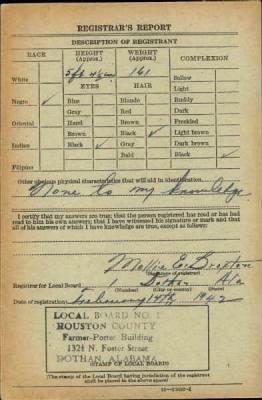 REGISTRAR'S REPORT
DESCRIPTION OF REGISTRANT
RACE
HEIGHT (Approx.)
WEIGHT (Approx.)
COMPLEXION
White
5 ft 4½ in
161
Sallow
EYES
HAIR
Light
Negro ✓
Blue
Blonde
Ruddy
Gray
Red
Dark
Oriental
Hazel
Brown
Freckled
Brown
Black ✓
Light brown
Indian
Black ✓
Gray
Dark brown
Bald
Black ✓
Filipino
Other obvious physical characteristics that will aid in identification
None to my knowledge
I certify that my answers are true; that the person registered has read or has had
read to him his own answers; that I have witnessed his signature or mark and that
all of his answers of which I have knowledge are true, except as follows:
Mollie E.
(Signature of registrar)
Registrar for Local Board
Dothan Ala
(Number) (City or county) (State)
Date of registration February 14th, 1942
LOCAL BOARD NO. 1
HOUSTON COUNTY
Farmer-Porter Building
132½ N. Foster Street
DOTHAN, ALABAMA
(STAMP OF LOCAL BOARD)
(The stamp of the Local Board having jurisdiction of the registrant
shall be placed in the above space)